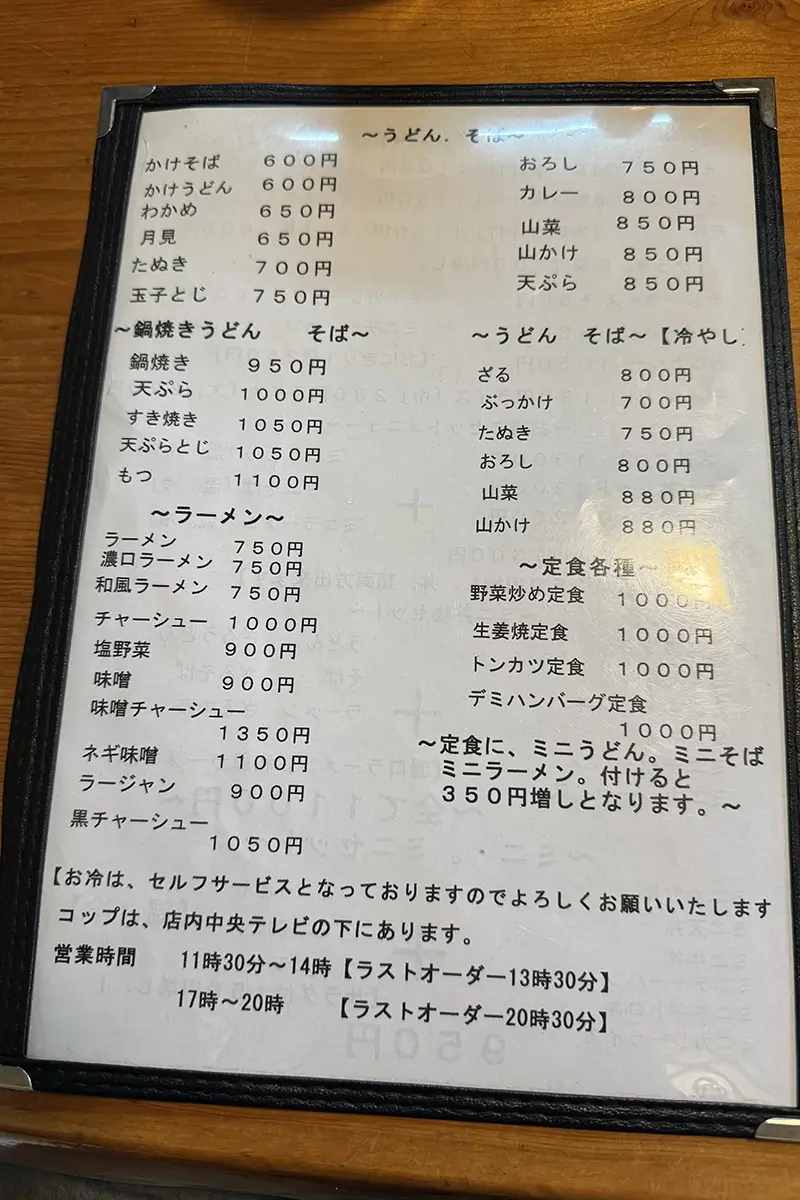 ～うどん．そば～
かけそば　６００円
かけうどん　６００円
わかめ　６５０円
月見　６５０円
たぬき　７００円
玉子とじ　７５０円
おろし　７５０円
カレー　８００円
山菜　８５０円
山かけ　８５０円
天ぷら　８５０円
～鍋焼きうどん　そば～
鍋焼き　９５０円
天ぷら　１０００円
すき焼き　１０５０円
天ぷらとじ　１０５０円
もつ　１１００円
～うどん　そば～【冷やし
ざる　８００円
ぶっかけ　７００円
たぬき　７５０円
おろし　８００円
山菜　８８０円
山かけ　８８０円
～ラーメン～
ラーメン　７５０円
濃口ラーメン　７５０円
和風ラーメン　７５０円
チャーシュー　１０００円
塩野菜　９００円
味噌　９００円
味噌チャーシュー
１３５０円
ネギ味噌　１１００円
ラージャン　９００円
黒チャーシュー
１０５０円
～定食各種～
野菜炒め定食　１０００円
生姜焼定食　１０００円
トンカツ定食　１０００円
デミハンバーグ定食
１０００円
～定食に、ミニうどん。ミニそば
ミニラーメン。付けると
３５０円増しとなります。～
【お冷は、セルフサービスとなっておりますのでよろしくお願いいたします
コップは、店内中央テレビの下にあります。
営業時間　11時30分～14時【ラストオーダー13時30分】
17時～20時　【ラストオーダー20時30分】